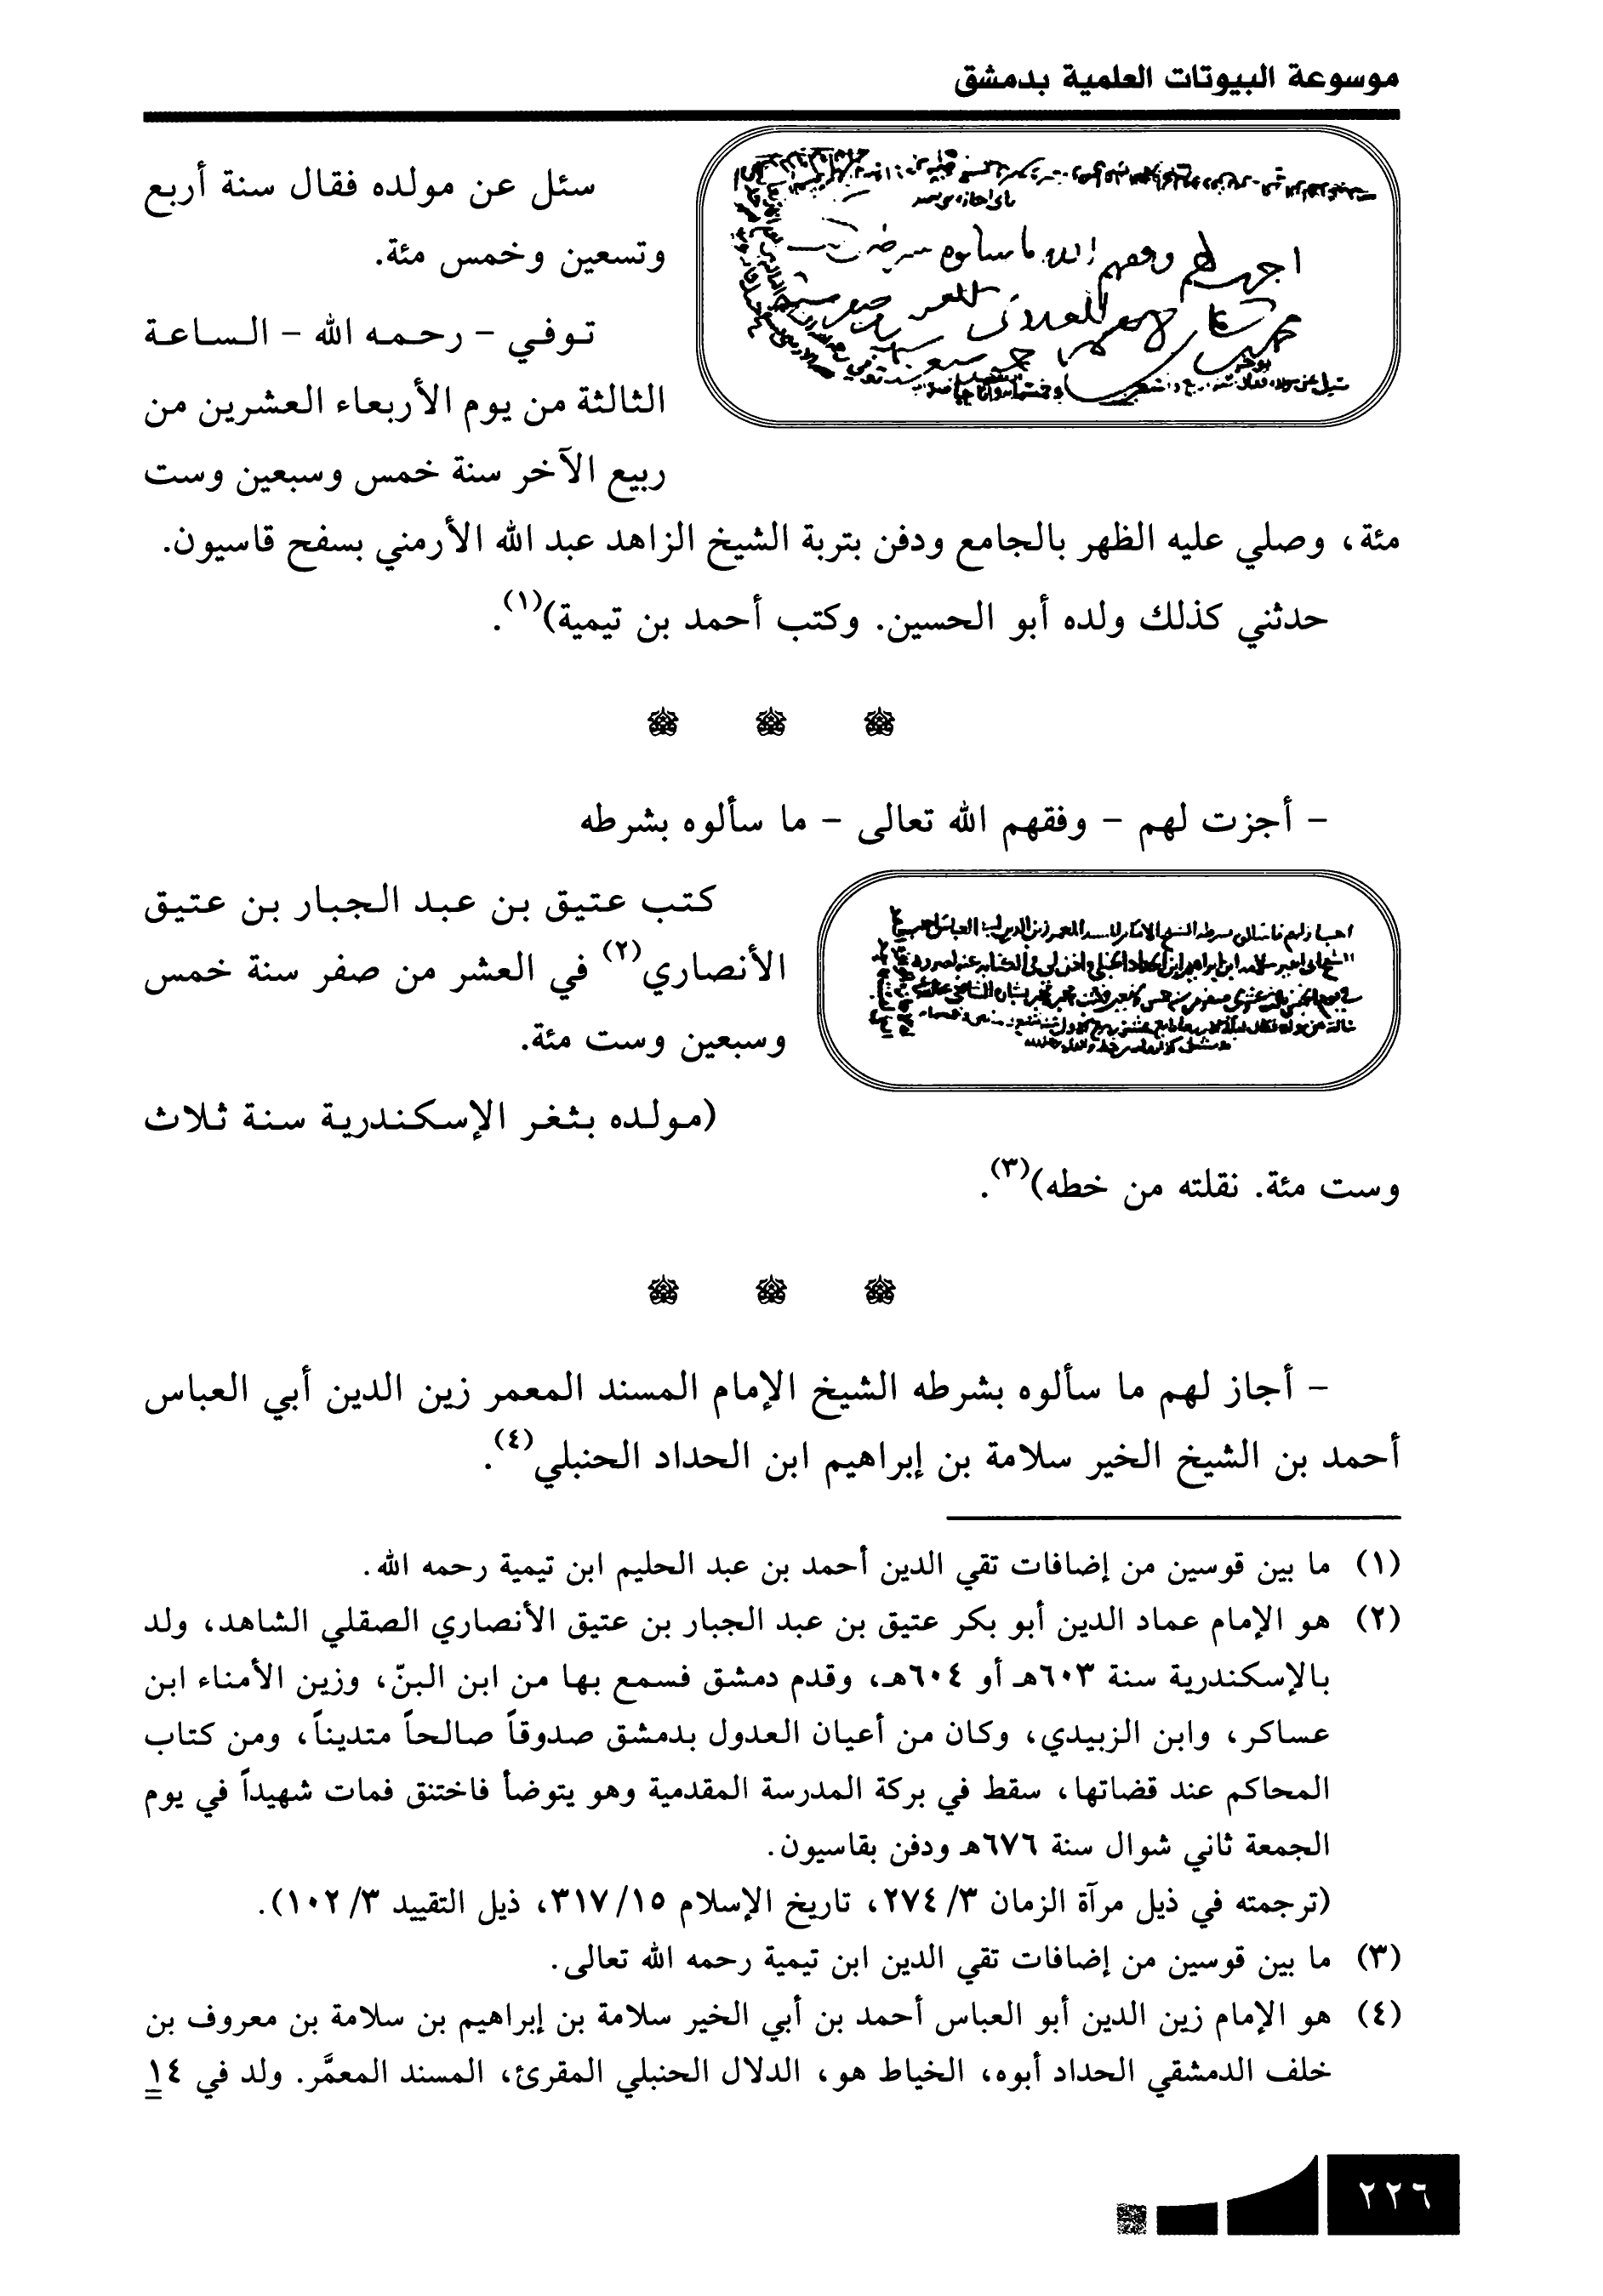 موسوعة البيوتات العلمية بدمشق
سئل عن مولده فقال سنة أربع
وتسعين وخمس مئة.
توفي - رحمه الله - الساعة
الثالثة من يوم الأربعاء العشرين من
ربيع الآخر سنة خمس وسبعين وست
مئة، وصلي عليه الظهر بالجامع ودفن بتربة الشيخ الزاهد عبد الله الأرمني بسفح قاسيون.
حدثني كذلك ولده أبو الحسين. وكتب أحمد بن تيمية)(١).
- أجزت لهم - وفقهم الله تعالى - ما سألوه بشرطه
كتب عتيق بن عبد الجبار بن عتيق
الأنصاري(٢) في العشر من صفر سنة خمس
وسبعين وست مئة.
(مولده بثغر الإسكندرية سنة ثلاث
وست مئة. نقلته من خطه)(٣).
- أجاز لهم ما سألوه بشرطه الشيخ الإمام المسند المعمر زين الدين أبي العباس
أحمد بن الشيخ الخير سلامة بن إبراهيم ابن الحداد الحنبلي(٤).
(١) ما بين قوسين من إضافات تقي الدين أحمد بن عبد الحليم ابن تيمية رحمه الله.
(٢) هو الإمام عماد الدين أبو بكر عتيق بن عبد الجبار بن عتيق الأنصاري الصقلي الشاهد، ولد
بالإسكندرية سنة ٦٠٣هـ أو ٦٠٤هـ، وقدم دمشق فسمع بها من ابن البنّ، وزين الأمناء ابن
عساكر، وابن الزبيدي، وكان من أعيان العدول بدمشق صدوقاً صالحاً متديناً، ومن كتاب
المحاكم عند قضاتها، سقط في بركة المدرسة المقدمية وهو يتوضأ فاختنق فمات شهيداً في يوم
الجمعة ثاني شوال سنة ٦٧٦هـ ودفن بقاسيون.
(ترجمته في ذيل مرآة الزمان ٣/ ٢٧٤، تاريخ الإسلام ١٥/ ٣١٧، ذيل التقييد ٣/ ١٠٢).
(٣) ما بين قوسين من إضافات تقي الدين ابن تيمية رحمه الله تعالى.
(٤) هو الإمام زين الدين أبو العباس أحمد بن أبي الخير سلامة بن إبراهيم بن سلامة بن معروف بن
خلف الدمشقي الحداد أبوه، الخياط هو، الدلال الحنبلي المقرئ، المسند المعمَّر. ولد في ١٤ =
٢٢٦